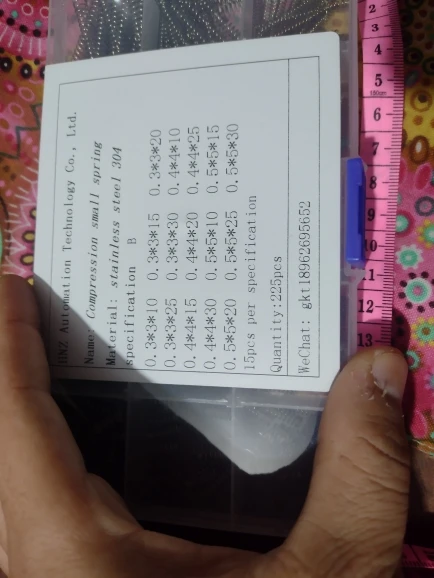 HNZ Automation Technology Co., Ltd.
Name: Compression small spring
Material: stainless steel 304
specification B
0.3*3*10 0.3*3*15 0.3*3*20
0.3*3*25 0.3*3*30 0.4*4*10
0.4*4*15 0.4*4*20 0.4*4*25
0.4*4*30 0.5*5*10 0.5*5*15
0.5*5*20 0.5*5*25 0.5*5*30
15pcs per specification
Quantity:225pcs
WeChat: gkt18962695652
2
3
4
5
6
7
8
9
10
11
12
13